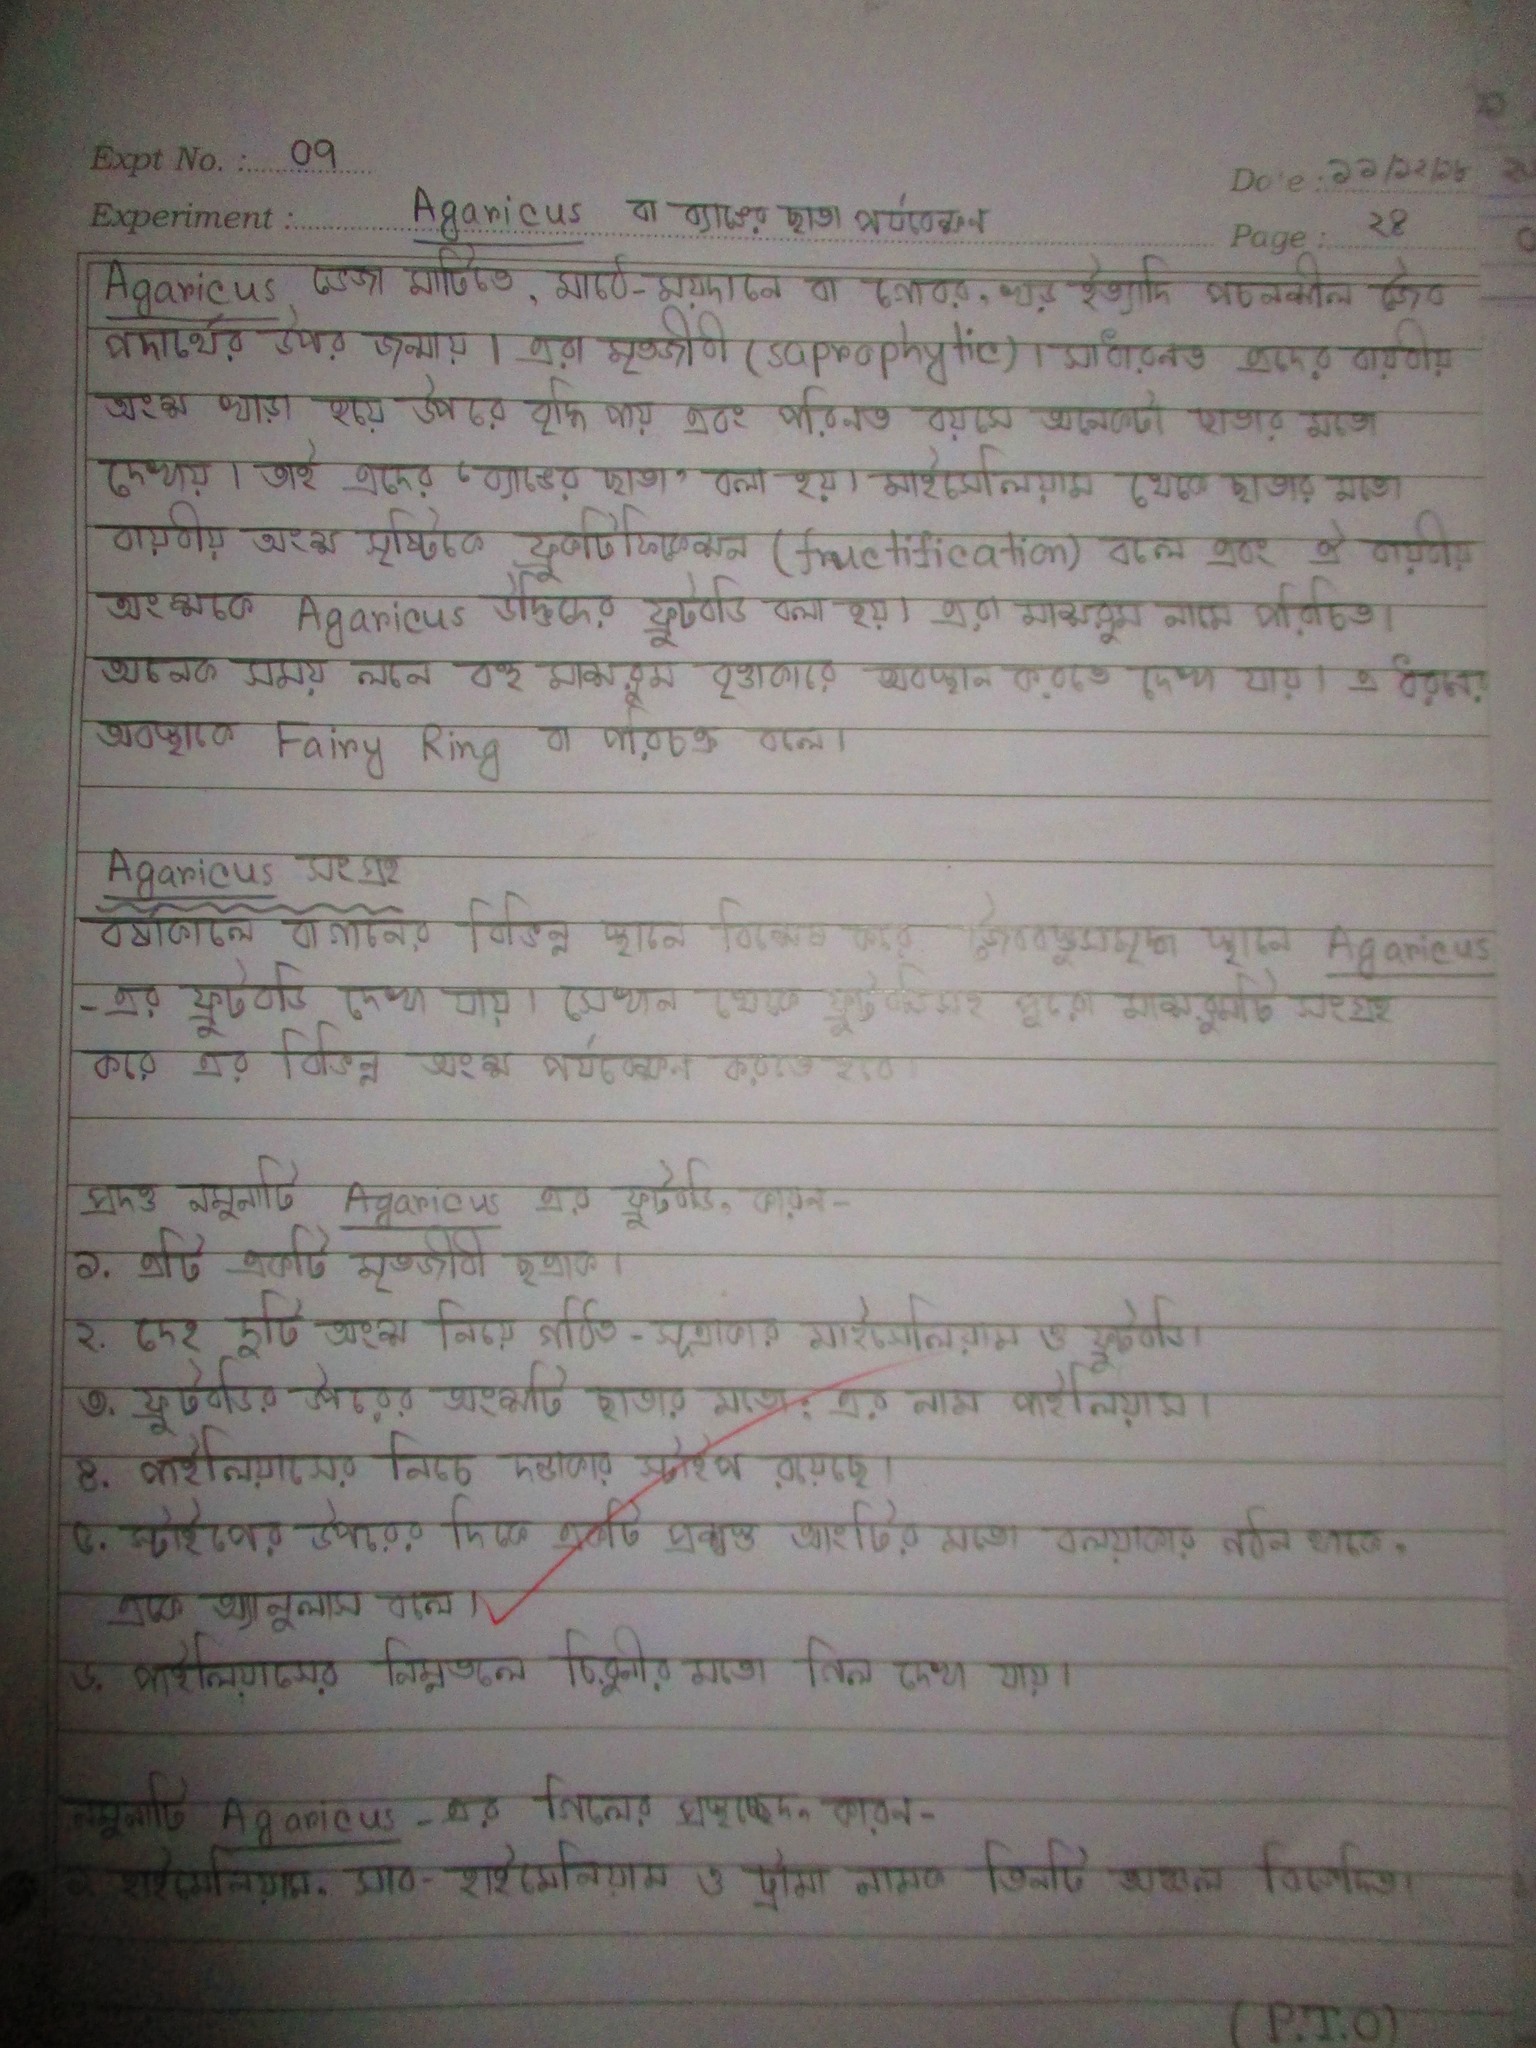 Expt No. : 09
Date : ২২/১২/১৮
Experiment : Agaricus বা ব্যাঙের ছাতা পর্যবেক্ষণ
Page : ২৪
Agaricus ভেজা মাটিতে, মাঠে-ময়দানে বা গোবর, খড় ইত্যাদি পচনশীল জৈব
পদার্থের উপর জন্মায়। এরা মৃতজীবী (saprophytic)। সাধারনত এদের বায়বীয়
অংশ খাড়া হয়ে উপরে বৃদ্ধি পায় এবং পরিনত বয়সে অনেকটা ছাতার মতো
দেখায়। তাই এদের 'ব্যাঙের ছাতা' বলা হয়। মাইসেলিয়াম থেকে ছাতার মতো
বায়বীয় অংশ সৃষ্টিকে ফ্রুকটিফিকেশন (fructification) বলে এবং ঐ বায়বীয়
অংশকে Agaricus উদ্ভিদের ফ্রুটবডি বলা হয়। এরা মাশরুম নামে পরিচিত।
অনেক সময় লনে বহু মাশরুম বৃত্তাকারে অবস্থান করতে দেখা যায়। এ ধরনের
অবস্থাকে Fairy Ring বা পরিচক্র বলে।
Agaricus সংগ্রহ
বর্ষাকালে বাগানের বিভিন্ন স্থানে বিশেষ করে জৈববস্তুসমৃদ্ধ স্থানে Agaricus
-এর ফ্রুটবডি দেখা যায়। সেখান থেকে ফ্রুটবডিসহ পুরো মাশরুমটি সংগ্রহ
করে এর বিভিন্ন অংশ পর্যবেক্ষন করতে হবে।
প্রদত্ত নমুনাটি Agaricus এর ফ্রুটবডি, কারন-
১. এটি একটি মৃতজীবী ছত্রাক।
২. দেহ দুটি অংশ নিয়ে গঠিত - সূত্রাকার মাইসেলিয়াম ও ফ্রুটবডি।
৩. ফ্রুটবডির উপরের অংশটি ছাতার মতো, এর নাম পাইলিয়াম।
৪. পাইলিয়ামের নিচে দন্ডাকার স্টাইপ রয়েছে।
৫. স্টাইপের উপরের দিকে একটি প্রশস্ত আংটির মতো বলয়াকার গঠন থাকে,
একে অ্যানুলাস বলে।
৬. পাইলিয়ামের নিম্নতলে চিরুনীর মতো গিল দেখা যায়।
নমুনাটি Agaricus-এর গিলের প্রস্থচ্ছেদ, কারন-
হাইমেনিয়াম, সাব-হাইমেনিয়াম ও ট্রামা নামক তিনটি অঞ্চল বিভেদিত।
(P.T.O)